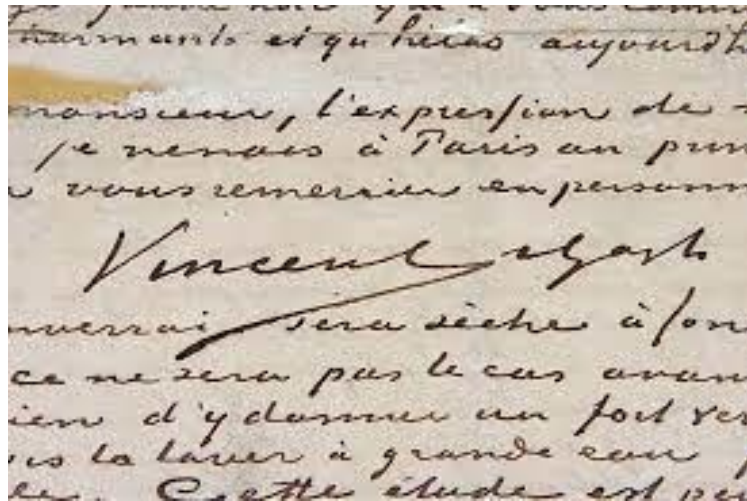 charmants et qu'hélas aujourd'h
monsieur, l'expression de
je venais à Paris au prin
vous remercier en personn
Vincent v Gogh
enverrai sera sèche à fon
ce ne sera pas le cas avan
ien d'y donner un fort ver
la laver à grande eau
Cette étude est